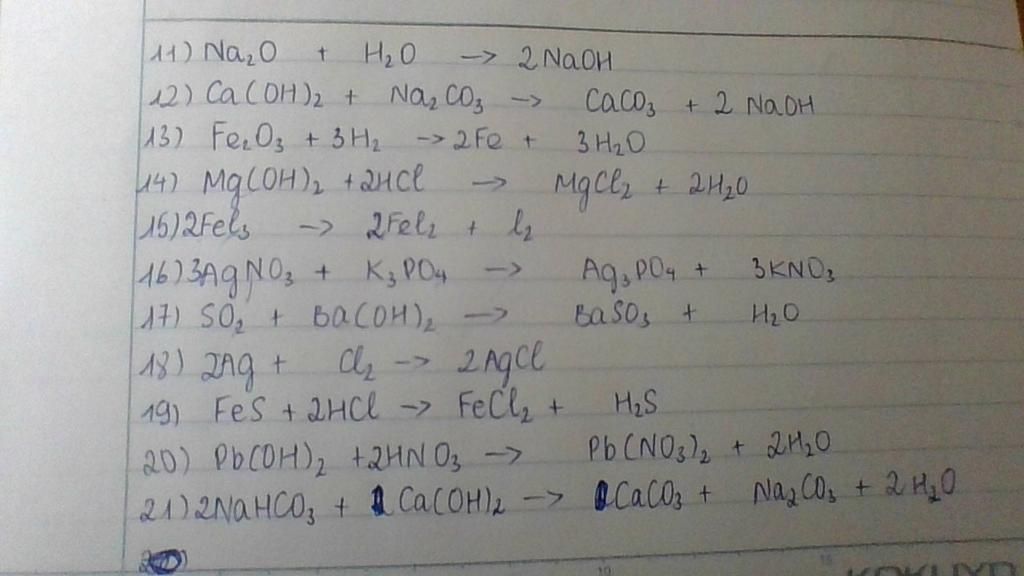 11) Na₂O + H₂O -> 2NaOH
12) Ca(OH)₂ + Na₂CO₃ -> CaCO₃ + 2 NaOH
13) Fe₂O₃ + 3H₂ -> 2Fe + 3H₂O
14) Mg(OH)₂ + 2HCl -> MgCl₂ + 2H₂O
15) 2FeI₃ -> 2FeI₂ + I₂
16) 3AgNO₃ + K₃PO₄ -> Ag₃PO₄ + 3KNO₃
17) SO₂ + Ba(OH)₂ -> BaSO₃ + H₂O
18) 2Ag + Cl₂ -> 2AgCl
19) FeS + 2HCl -> FeCl₂ + H₂S
20) Pb(OH)₂ + 2HNO₃ -> Pb(NO₃)₂ + 2H₂O
21) 2NaHCO₃ + Ca(OH)₂ -> CaCO₃ + Na₂CO₃ + 2H₂O
KOKUYO